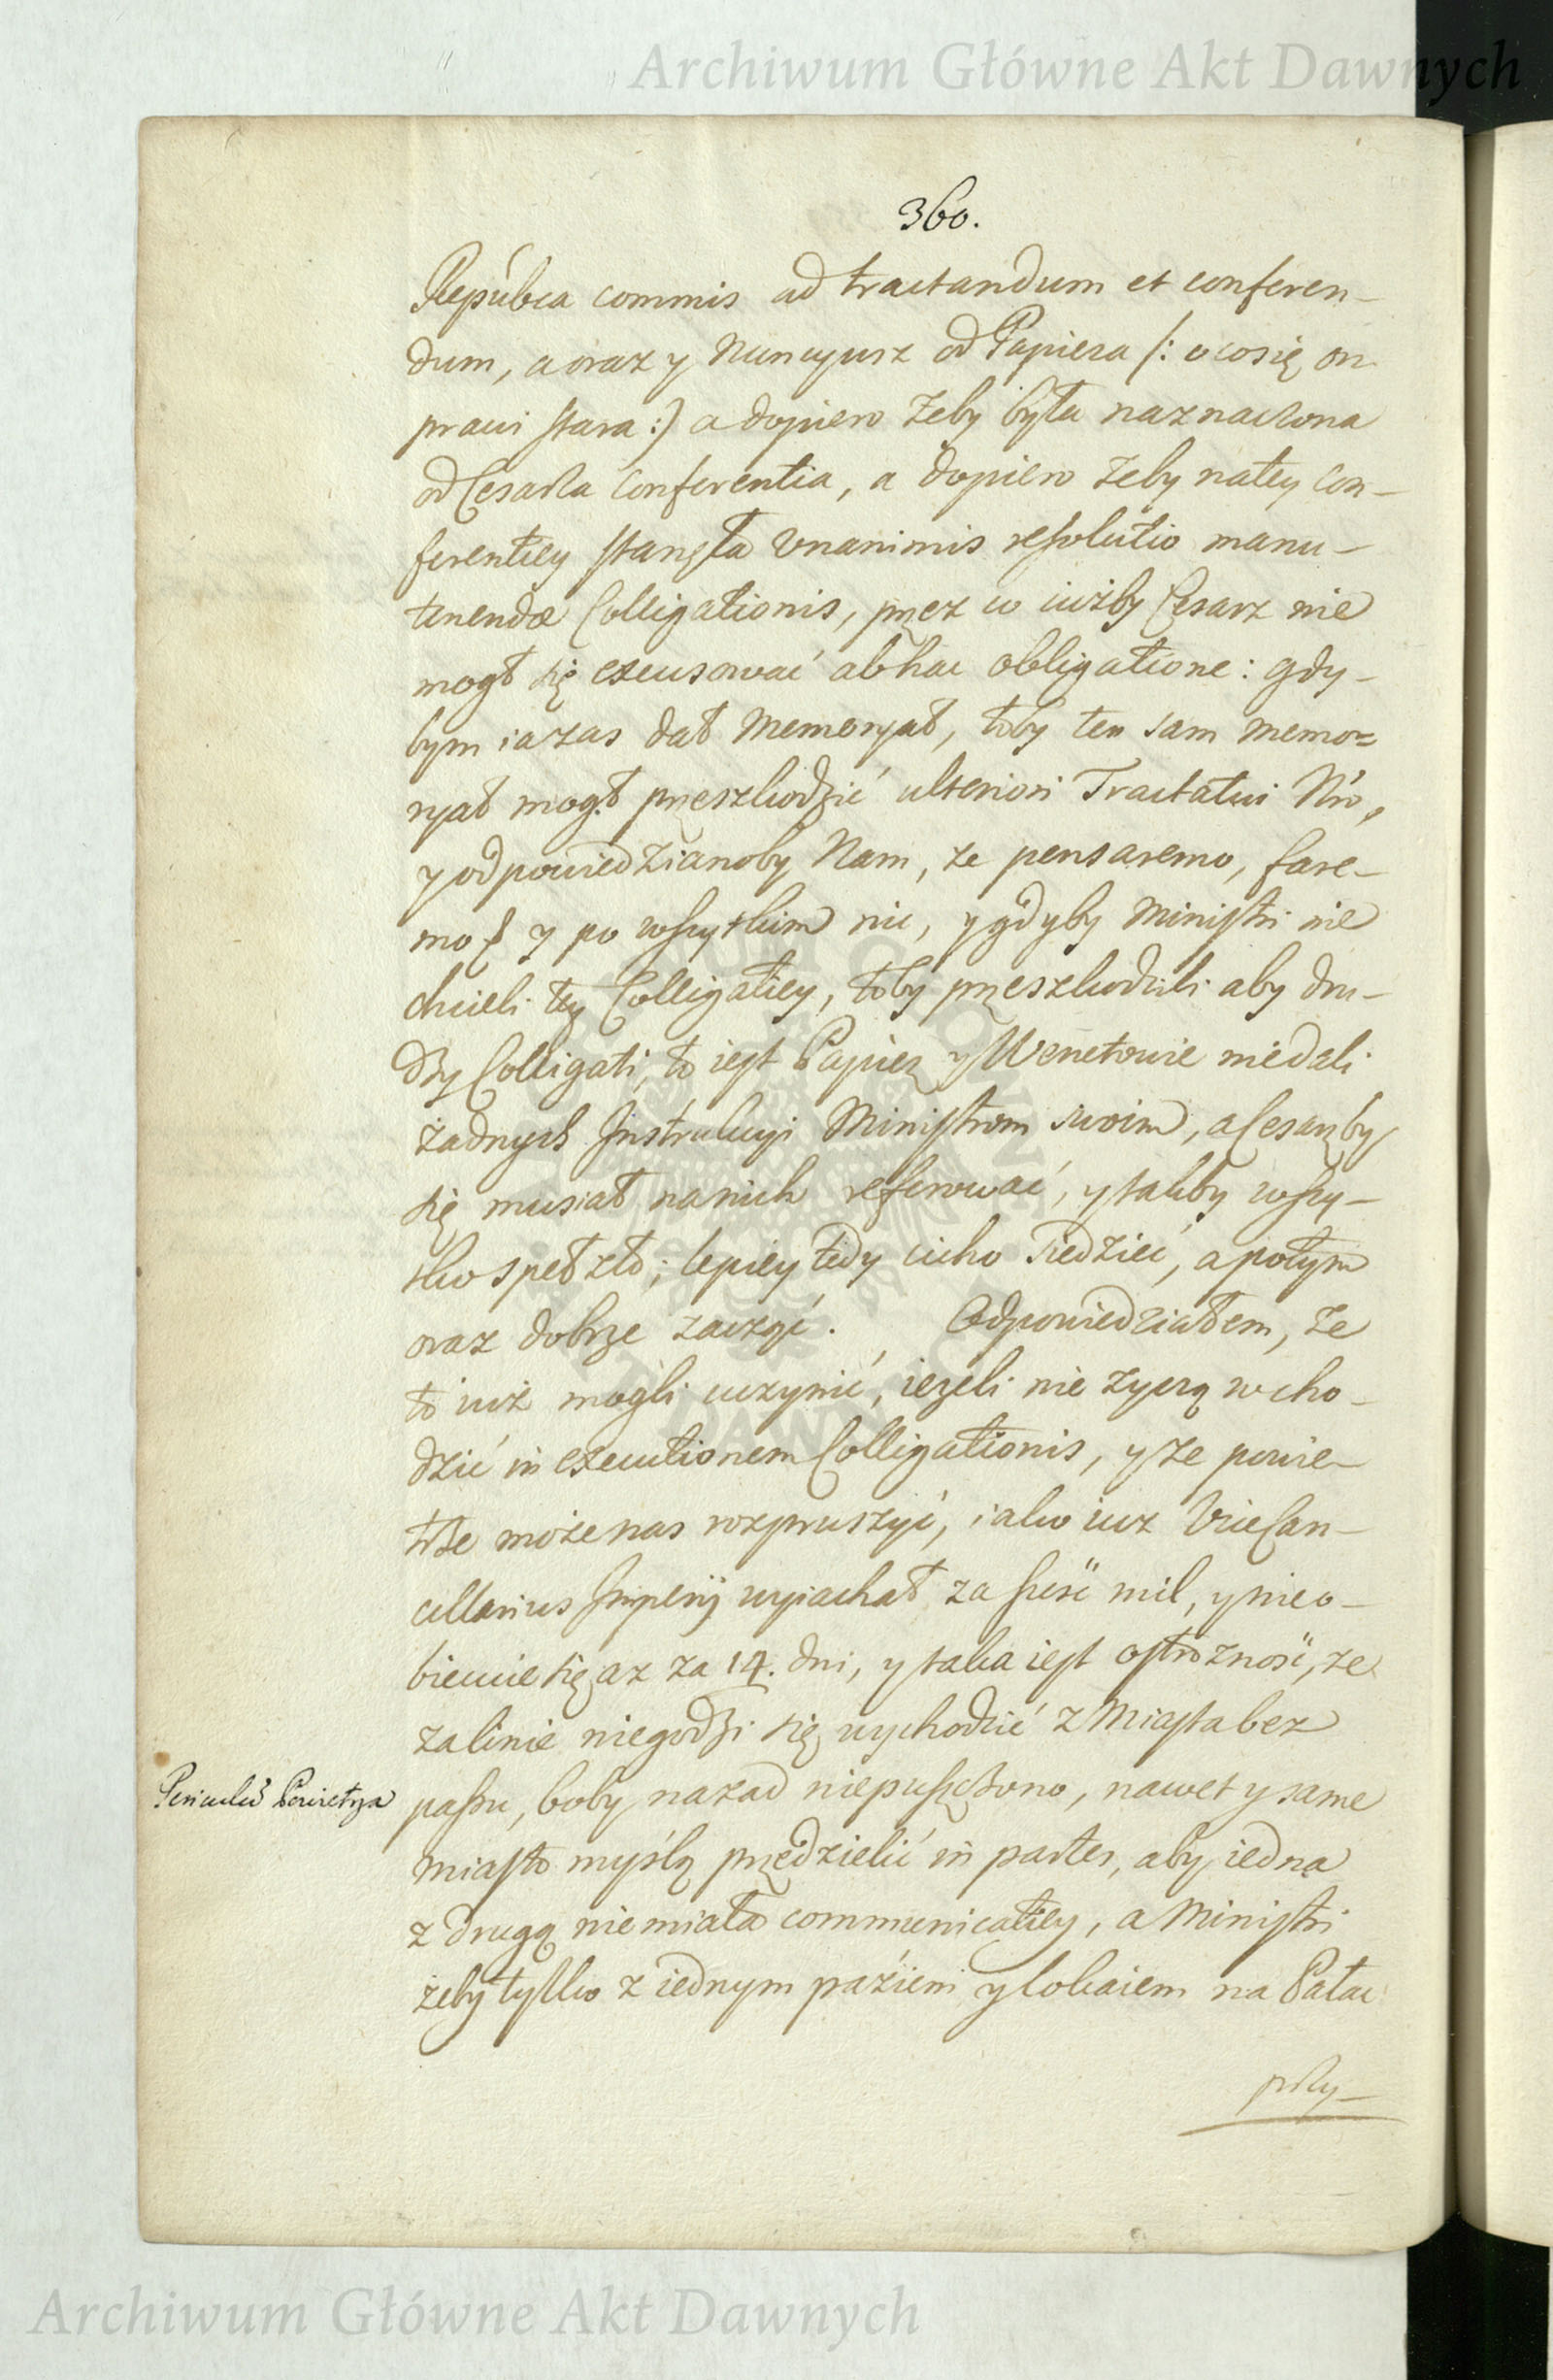 Archiwum Główne Akt Dawnych
360.
Repúbca commis ad tractandum et conferen-
dum, a oraz y Nuncyusz od Papieza /: o co się on
prawi stara :/ a dopiero żeby była naznaczona
od Cesarza Conferentia, a dopiero żeby na tey con-
ferentiey stanęła Unanimis resolutio manu-
tenendæ Colligationis, przez co iużby Cesarz nie
mogł się excusować ab hac obligatione: gdy-
bym ia zas dał Memoryał, toby ten sam memo=
ryał mogł przeszkodzić ulteriori Tractatui Nro,
y odpowiedzianoby Nam, ze pensaremo, fare-
mo y po wszytkim nic, y gdyby Ministri nie
chcieli tey Colligatiey, toby przeszkodzili aby dru-
dzy Colligati, to iest Papiez y Wenetowie niedali
żadnych Instrukcyi Ministrom swoim, a Cesarzby
się musiał na nich referować, y takby wszy-
tko spełzło; lepiey tedy cicho siedzieć, a potym
oraz dobrze zacząć. Odpowiedziałem, że
to iuż mogli uczynić, ieżeli nie zyczą wcho-
dzić in executionem Colligationis, y że powie-
trze może nas rozpruszyć, iako iuz ViceCan-
cellarius Imperij wyiachał za sześć mil, y nie o-
biecuie się az za 14. dni, y taka iest ostrożność, ze
za linie niegodzi się wychodzić z Miasta bez
Periculũ Powietrza
passu, boby nazad niepuszczono, nawet y same
miasto myślą przedzielić in partes, aby iedna
z drugą nie miała communicatiey, a Ministri
żeby tylko z iednym paziem y lokaiem na Pałac
przy-
Archiwum Główne Akt Dawnych